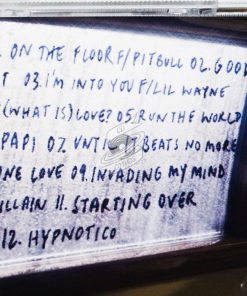 . ON THE FLOOR F/PITBULL 02. GOOD
T 03. I'M INTO YOU F/LIL WAYNE
(WHAT IS) LOVE? 05. RUN THE WORLD
PAPI 07. UNTIL IT BEATS NO MORE
ONE LOVE 09. INVADING MY MIND
ILLAIN 11. STARTING OVER
12. HYPNOTICO